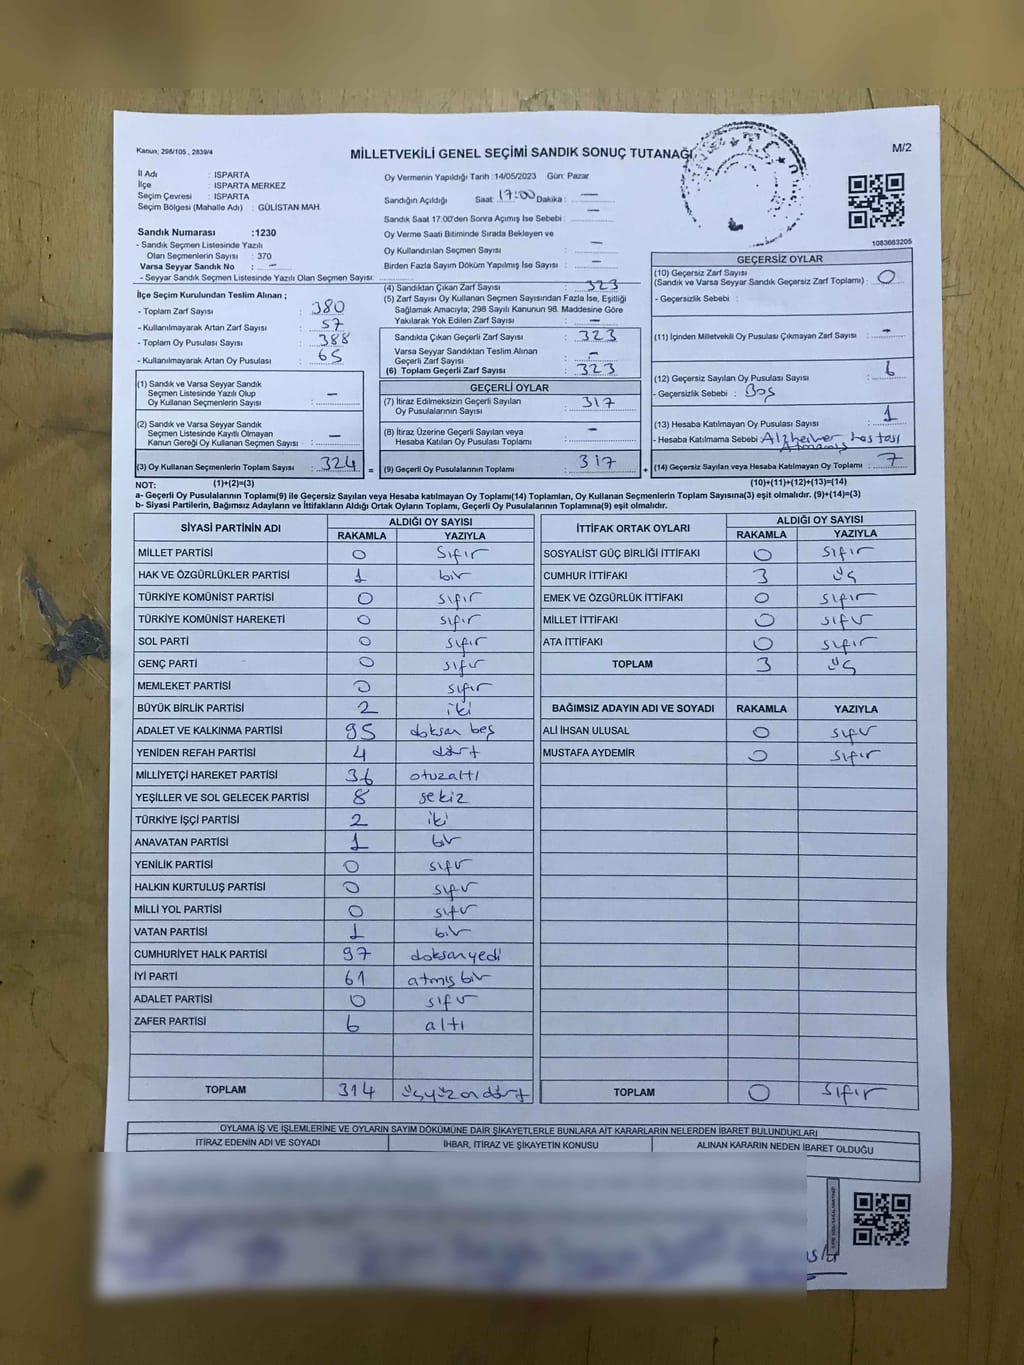 Kanun; 298/105 , 2839/4
MİLLETVEKİLİ GENEL SEÇİMİ SANDIK SONUÇ TUTANAĞI
M/2
İl Adı : ISPARTA
İlçe : ISPARTA MERKEZ
Seçim Çevresi : ISPARTA
Seçim Bölgesi (Mahalle Adı) : GÜLİSTAN MAH.
Sandık Numarası :1230
- Sandık Seçmen Listesinde Yazılı
Olan Seçmenlerin Sayısı : 370
Varsa Seyyar Sandık No : -
- Seyyar Sandık Seçmen Listesinde Yazılı Olan Seçmen Sayısı:
Oy Vermenin Yapıldığı Tarih :14/05/2023 Gün: Pazar
Sandığın Açıldığı Saat: 17:00 Dakika : —
Sandık Saat 17:00'den Sonra Açımış İse Sebebi : —
Oy Verme Saati Bitiminde Sırada Bekleyen ve
Oy Kullandırılan Seçmen Sayısı : —
Birden Fazla Sayım Döküm Yapılmış İse Sayısı : —
1083663205
İlçe Seçim Kurulundan Teslim Alınan ;
- Toplam Zarf Sayısı : 380
- Kullanılmayarak Artan Zarf Sayısı : 57
- Toplam Oy Pusulası Sayısı : 388
- Kullanılmayarak Artan Oy Pusulası : 65
(1) Sandık ve Varsa Seyyar Sandık
Seçmen Listesinde Yazılı Olup
Oy Kullanan Seçmenlerin Sayısı : —
(2) Sandık ve Varsa Seyyar Sandık
Seçmen Listesinde Kayıtlı Olmayan
Kanun Gereği Oy Kullanan Seçmen Sayısı : —
(3) Oy Kullanan Seçmenlerin Toplam Sayısı : 324 =
(4) Sandıktan Çıkan Zarf Sayısı : 323
(5) Zarf Sayısı Oy Kullanan Seçmen Sayısından Fazla İse, Eşitliği
Sağlamak Amacıyla, 298 Sayılı Kanunun 98. Maddesine Göre
Yakılarak Yok Edilen Zarf Sayısı : —
Sandıkta Çıkan Geçerli Zarf Sayısı : 323
Varsa Seyyar Sandıktan Teslim Alınan
Geçerli Zarf Sayısı : —
(6) Toplam Geçerli Zarf Sayısı : 323
GEÇERLİ OYLAR
(7) İtiraz Edilmeksizin Geçerli Sayılan
Oy Pusulalarının Sayısı : 317
(8) İtiraz Üzerine Geçerli Sayılan veya
Hesaba Katılan Oy Pusulası Toplamı : —
(9) Geçerli Oy Pusulalarının Toplamı : 317 +
GEÇERSİZ OYLAR
(10) Geçersiz Zarf Sayısı
(Sandık ve Varsa Seyyar Sandık Geçersiz Zarf Toplamı) : 0
- Geçersizlik Sebebi :
(11) İçinden Milletvekili Oy Pusulası Çıkmayan Zarf Sayısı : -
(12) Geçersiz Sayılan Oy Pusulası Sayısı : 6
- Geçersizlik Sebebi : Boş
(13) Hesaba Katılmayan Oy Pusulası Sayısı : 1
- Hesaba Katılmama Sebebi : Alzheimer hastası
Atmamış
(14) Geçersiz Sayılan veya Hesaba Katılmayan Oy Toplamı : 7
NOT: (1)+(2)=(3) (10)+(11)+(12)+(13)=(14)
a- Geçerli Oy Pusulalarının Toplamı(9) ile Geçersiz Sayılan veya Hesaba katılmayan Oy Toplamı(14) Toplamları, Oy Kullanan Seçmenlerin Toplam Sayısına(3) eşit olmalıdır. (9)+(14)=(3)
b- Siyasi Partilerin, Bağımsız Adayların ve İttifakların Aldığı Ortak Oyların Toplamı, Geçerli Oy Pusulalarının Toplamına(9) eşit olmalıdır.
SİYASİ PARTİNİN ADI ALDIĞI OY SAYISI
RAKAMLA YAZIYLA
MİLLET PARTİSİ 0 Sıfır
HAK VE ÖZGÜRLÜKLER PARTİSİ 1 bir
TÜRKİYE KOMÜNİST PARTİSİ 0 sıfır
TÜRKİYE KOMÜNİST HAREKETİ 0 sıfır
SOL PARTİ 0 sıfır
GENÇ PARTİ 0 sıfır
MEMLEKET PARTİSİ 0 sıfır
BÜYÜK BİRLİK PARTİSİ 2 iki
ADALET VE KALKINMA PARTİSİ 95 doksan beş
YENİDEN REFAH PARTİSİ 4 dört
MİLLİYETÇİ HAREKET PARTİSİ 36 otuzaltı
YEŞİLLER VE SOL GELECEK PARTİSİ 8 sekiz
TÜRKİYE İŞÇİ PARTİSİ 2 iki
ANAVATAN PARTİSİ 1 bir
YENİLİK PARTİSİ 0 sıfır
HALKIN KURTULUŞ PARTİSİ 0 sıfır
MİLLİ YOL PARTİSİ 0 sıfır
VATAN PARTİSİ 1 bir
CUMHURİYET HALK PARTİSİ 97 doksanyedi
İYİ PARTİ 61 atmış bir
ADALET PARTİSİ 0 sıfır
ZAFER PARTİSİ 6 altı
TOPLAM 314 üçyüz ondört
İTTİFAK ORTAK OYLARI ALDIĞI OY SAYISI
RAKAMLA YAZIYLA
SOSYALİST GÜÇ BİRLİĞİ İTTİFAKI 0 Sıfır
CUMHUR İTTİFAKI 3 üç
EMEK VE ÖZGÜRLÜK İTTİFAKI 0 sıfır
MİLLET İTTİFAKI 0 sıfır
ATA İTTİFAKI 0 sıfır
TOPLAM 3 üç
BAĞIMSIZ ADAYIN ADI VE SOYADI RAKAMLA YAZIYLA
ALİ İHSAN ULUSAL 0 sıfır
MUSTAFA AYDEMİR 0 sıfır
TOPLAM 0 sıfır
OYLAMA İŞ VE İŞLEMLERİNE VE OYLARIN SAYIM DÖKÜMÜNE DAİR ŞİKAYETLERLE BUNLARA AİT KARARLARIN NELERDEN İBARET BULUNDUKLARI
İTİRAZ EDENİN ADI VE SOYADI İHBAR, İTİRAZ VE ŞİKAYETİN KONUSU ALINAN KARARIN NEDEN İBARET OLDUĞU